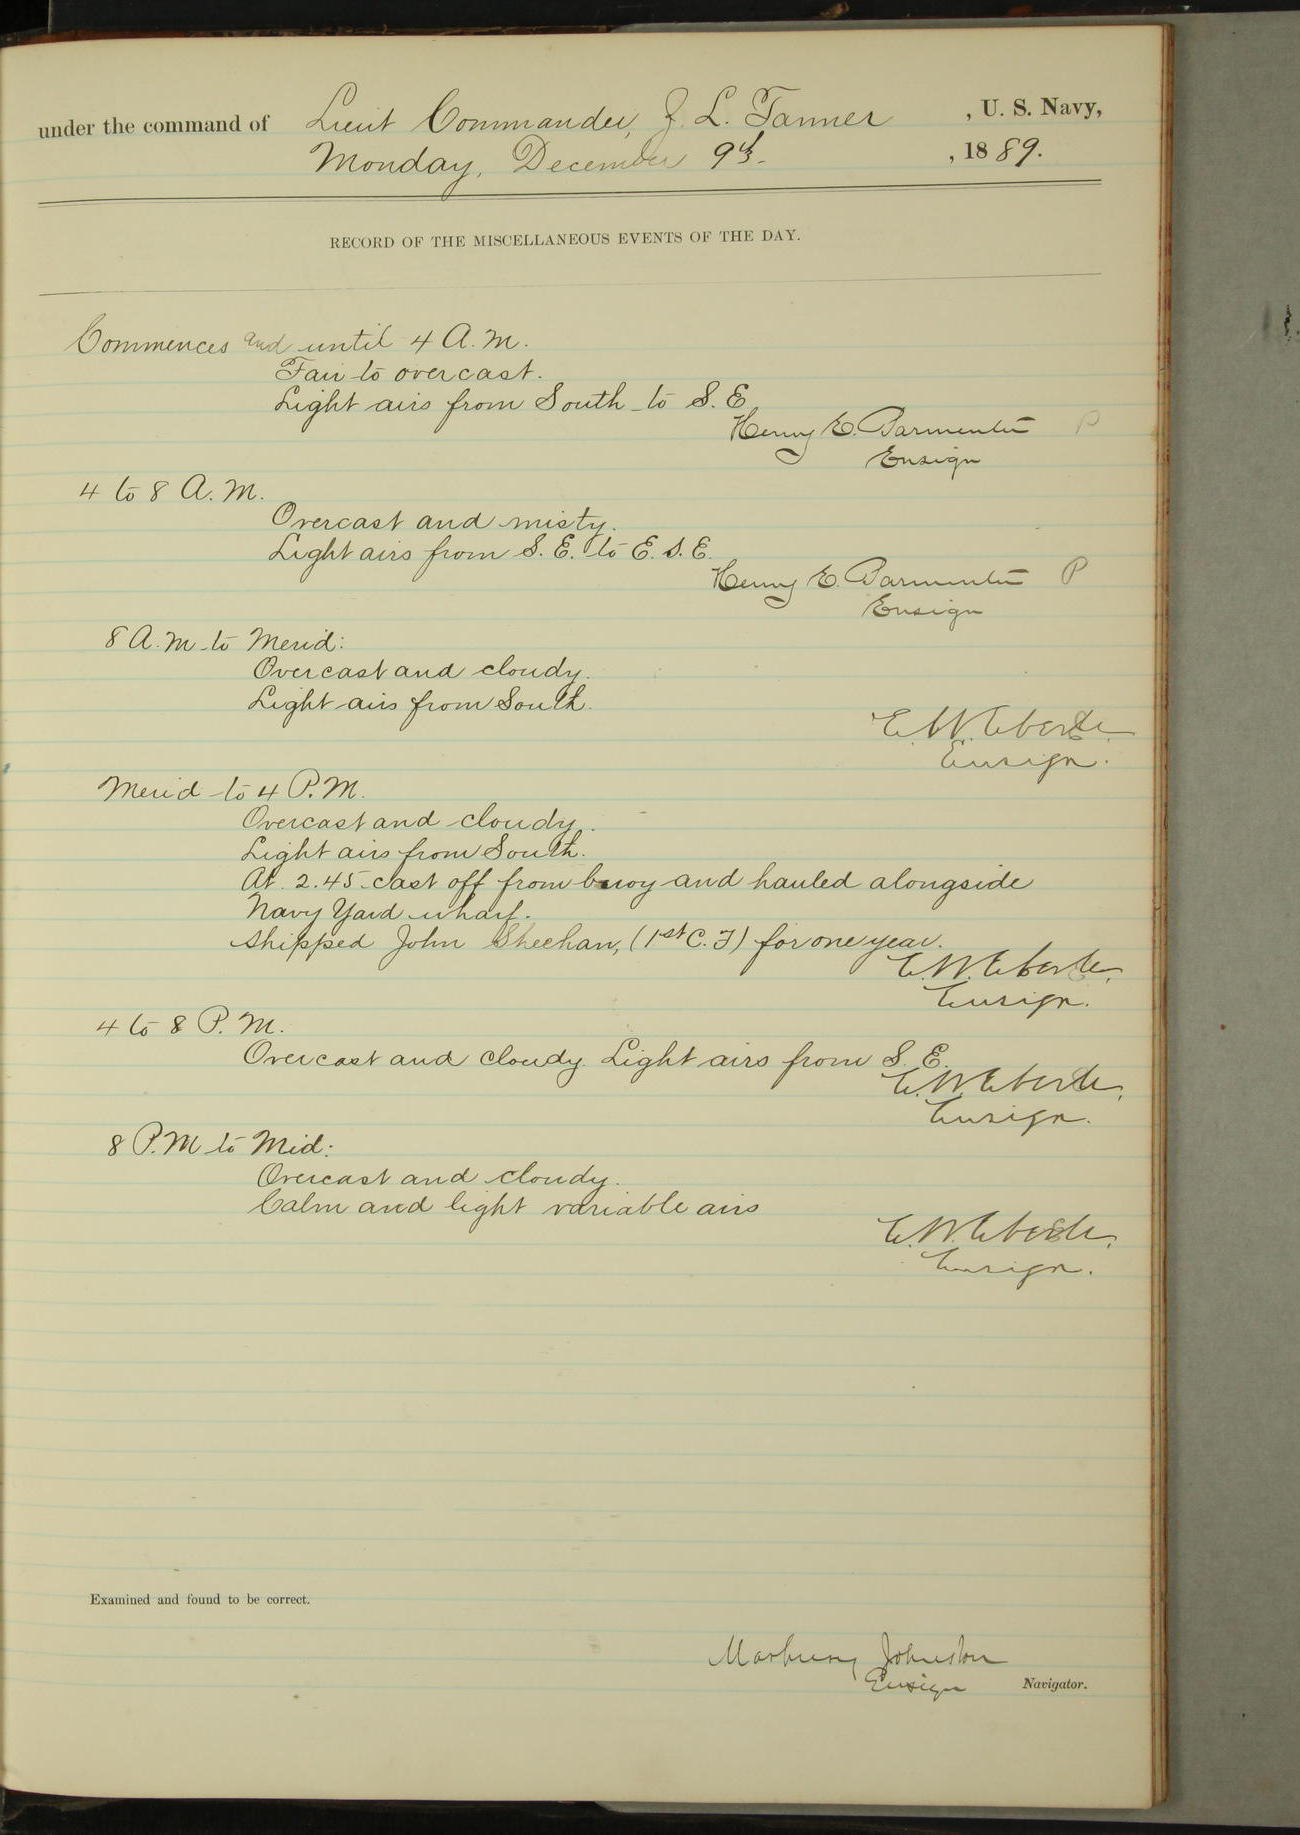 under the command of Lieut Commander, Z. L. Tanner, U. S. Navy,
Monday, December 9th, 1889.
RECORD OF THE MISCELLANEOUS EVENTS OF THE DAY.
Commences and until 4 A.M.
Fair to overcast.
Light airs from South to S. E.
Henry E. Parmenter P
Ensign
4 to 8 A.M.
Overcast and misty.
Light airs from S. E. to E. S. E.
Henry E. Parmenter P
Ensign
8 A.M. to Merid:
Overcast and cloudy.
Light airs from South.
E. W. Eberle.
Ensign.
Merid to 4 P.M.
Overcast and cloudy.
Light airs from South.
At 2.45 cast off from buoy and hauled alongside
Navy Yard wharf.
Shipped John Sheehan, (1st C. F) for one year.
E. W. Eberle,
Ensign.
4 to 8 P. M.
Overcast and cloudy. Light airs from S. E.
E. W. Eberle,
Ensign.
8 P.M to Mid:
Overcast and cloudy.
Calm and light variable airs
E. W. Eberle,
Ensign.
Examined and found to be correct.
Marbury Johnston
Ensign Navigator.